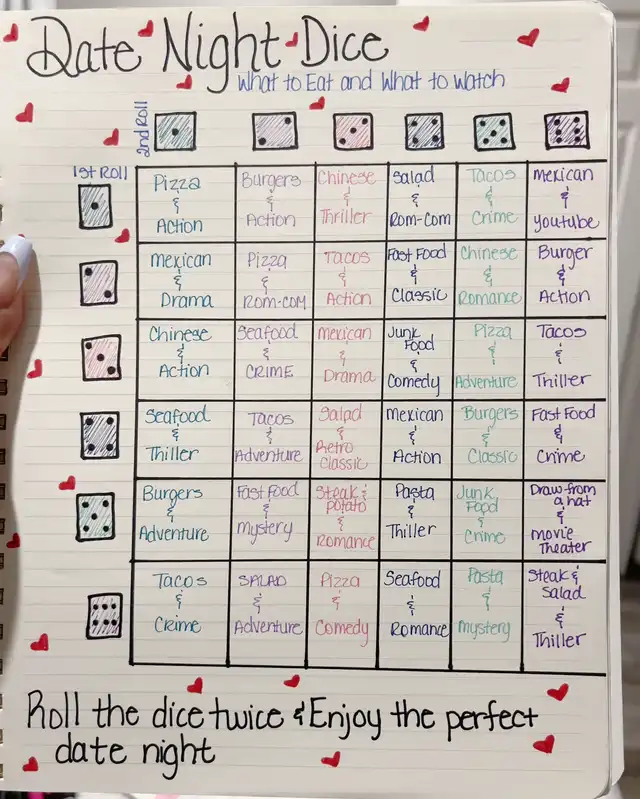 Date Night Dice
What to Eat and What to Watch
2nd Roll
1st Roll
Pizza
&
Action
Burgers
&
Action
Chinese
&
Thriller
Salad
&
Rom-Com
Tacos
&
Crime
Mexican
&
Youtube
Mexican
&
Drama
Pizza
&
Rom-Com
Tacos
&
Action
Fast Food
&
Classic
Chinese
&
Romance
Burger
&
Action
Chinese
&
Action
Seafood
&
CRIME
Mexican
&
Drama
Junk
Food
&
Comedy
Pizza
&
Adventure
Tacos
&
Thriller
Seafood
&
Thriller
Tacos
&
Adventure
Salad
&
Retro
Classic
Mexican
&
Action
Burgers
&
Classic
Fast Food
&
Crime
Burgers
&
Adventure
Fast Food
&
Mystery
Steak &
Potato
&
Romance
Pasta
&
Thriller
Junk
Food
&
Crime
Draw from
a hat
&
Movie
Theater
Tacos
&
Crime
SALAD
&
Adventure
Pizza
&
Comedy
Seafood
&
Romance
Pasta
&
Mystery
Steak &
Salad
&
Thiller
Roll the dice twice & Enjoy the perfect
date night